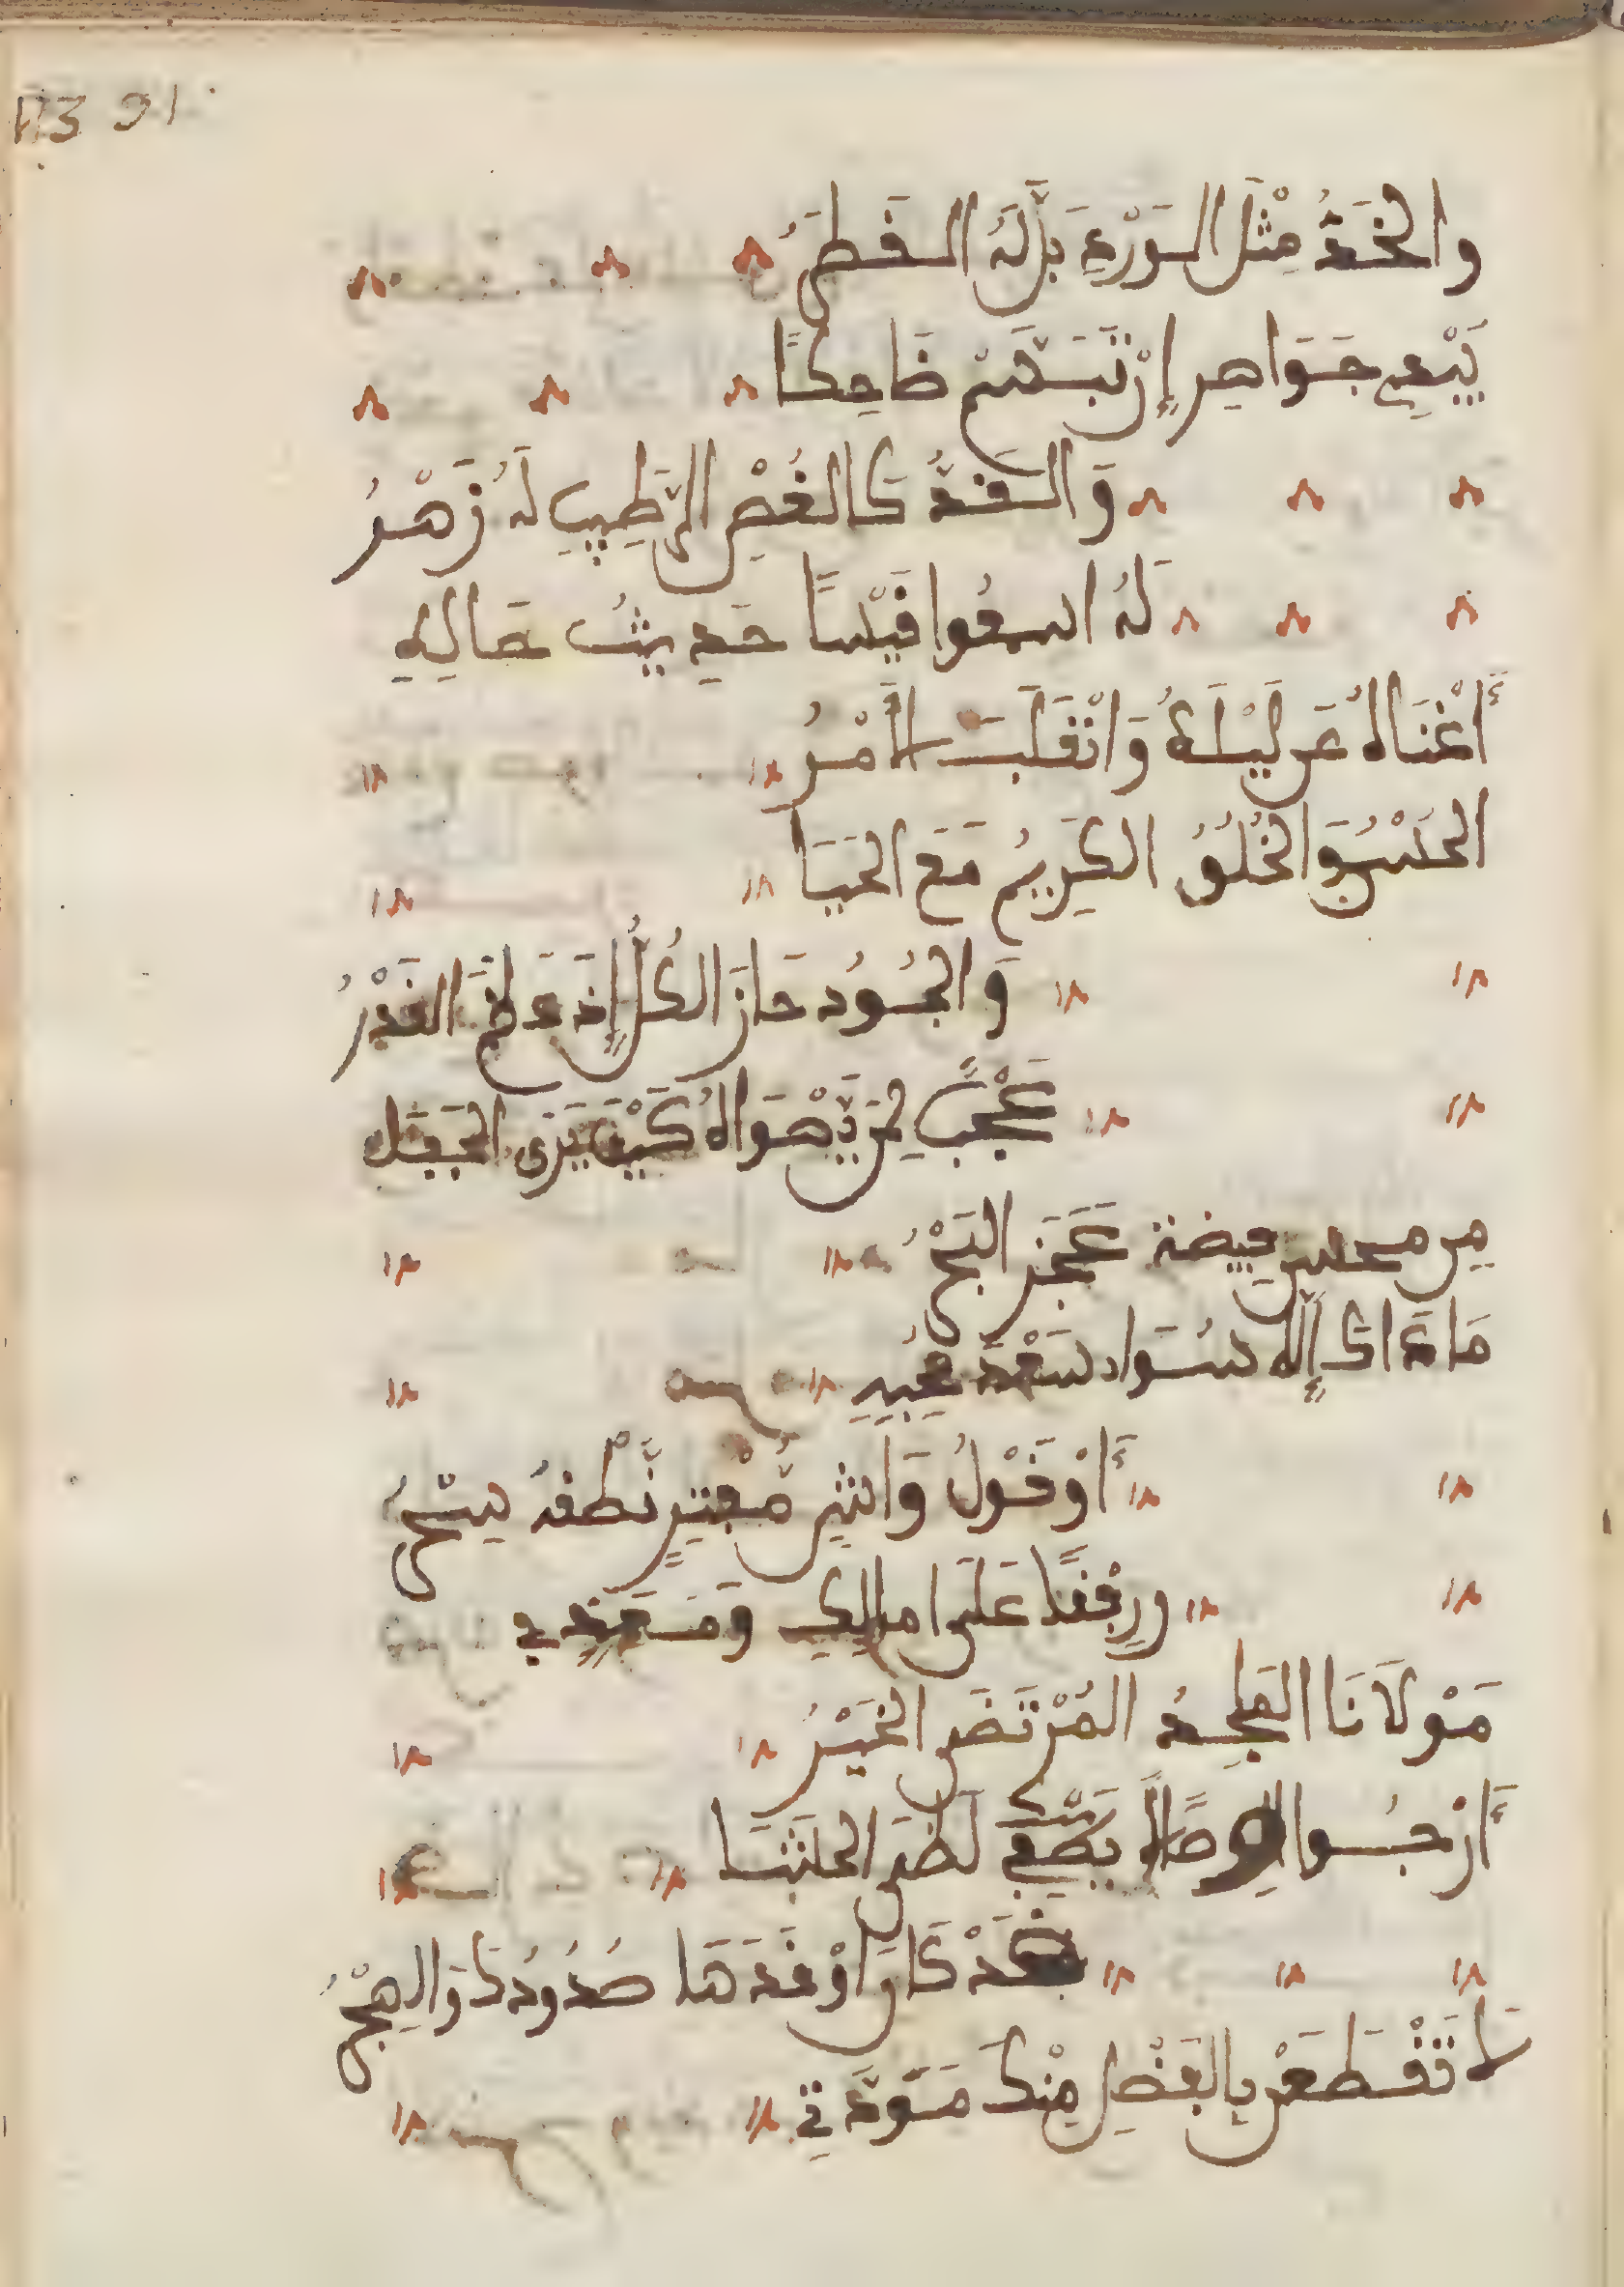 113 91
والخَدُّ مِثْلَ الوَرْدِ بَلَّهُ القَطْرُ
يُبْدِي جَوَاهِر إِن تَبَسَّمَ ضَاحِكًا
وَالقَدُّ كالغُصْنِ الرَّطِيبِ لَهُ زَهْرُ
لَهُ اسمعوا قَيْسًا حَدِيثُ حَالِهِ
أَغْنَاهُ عَن لَيْلَةٍ وَانْقَلَبَ الأَمْرُ
الحُسْنُ وَالخُلُقُ الكَرِيمُ مَعَ الحَيَا
وَالجُودُ حَازَ الكُلَّ إِذ عَظُمَ القَدْرُ
عَجَبًا لِمَن يَهْوَاهُ كَيْفَ يَرَى الجَفَا
مِن محسن فيضه عَجَزَ البَحْرُ
مَا ذَاكَ إِلَّا سُوَاد سَعْد
أَوْ قَوْلُ وَاشٍ مُفْتَرٍ نُطْقُهُ سِحْرُ
وَرِفْقًا عَلَى مالك وَمُ
مَوْلَانَا المَاجِدُ المُرْتَضَى الخَيْرُ
أَرْجُوا وِصَالًا يُطْفِي لَظَى الحَشَا
فَقَدْ كَانَ أَوْقَدَهَا صُدُودُكَ وَالهَجْرُ
لَا تَقْطَعَن بِالفَضْلِ مِنْكَ مَوَدَّتِي